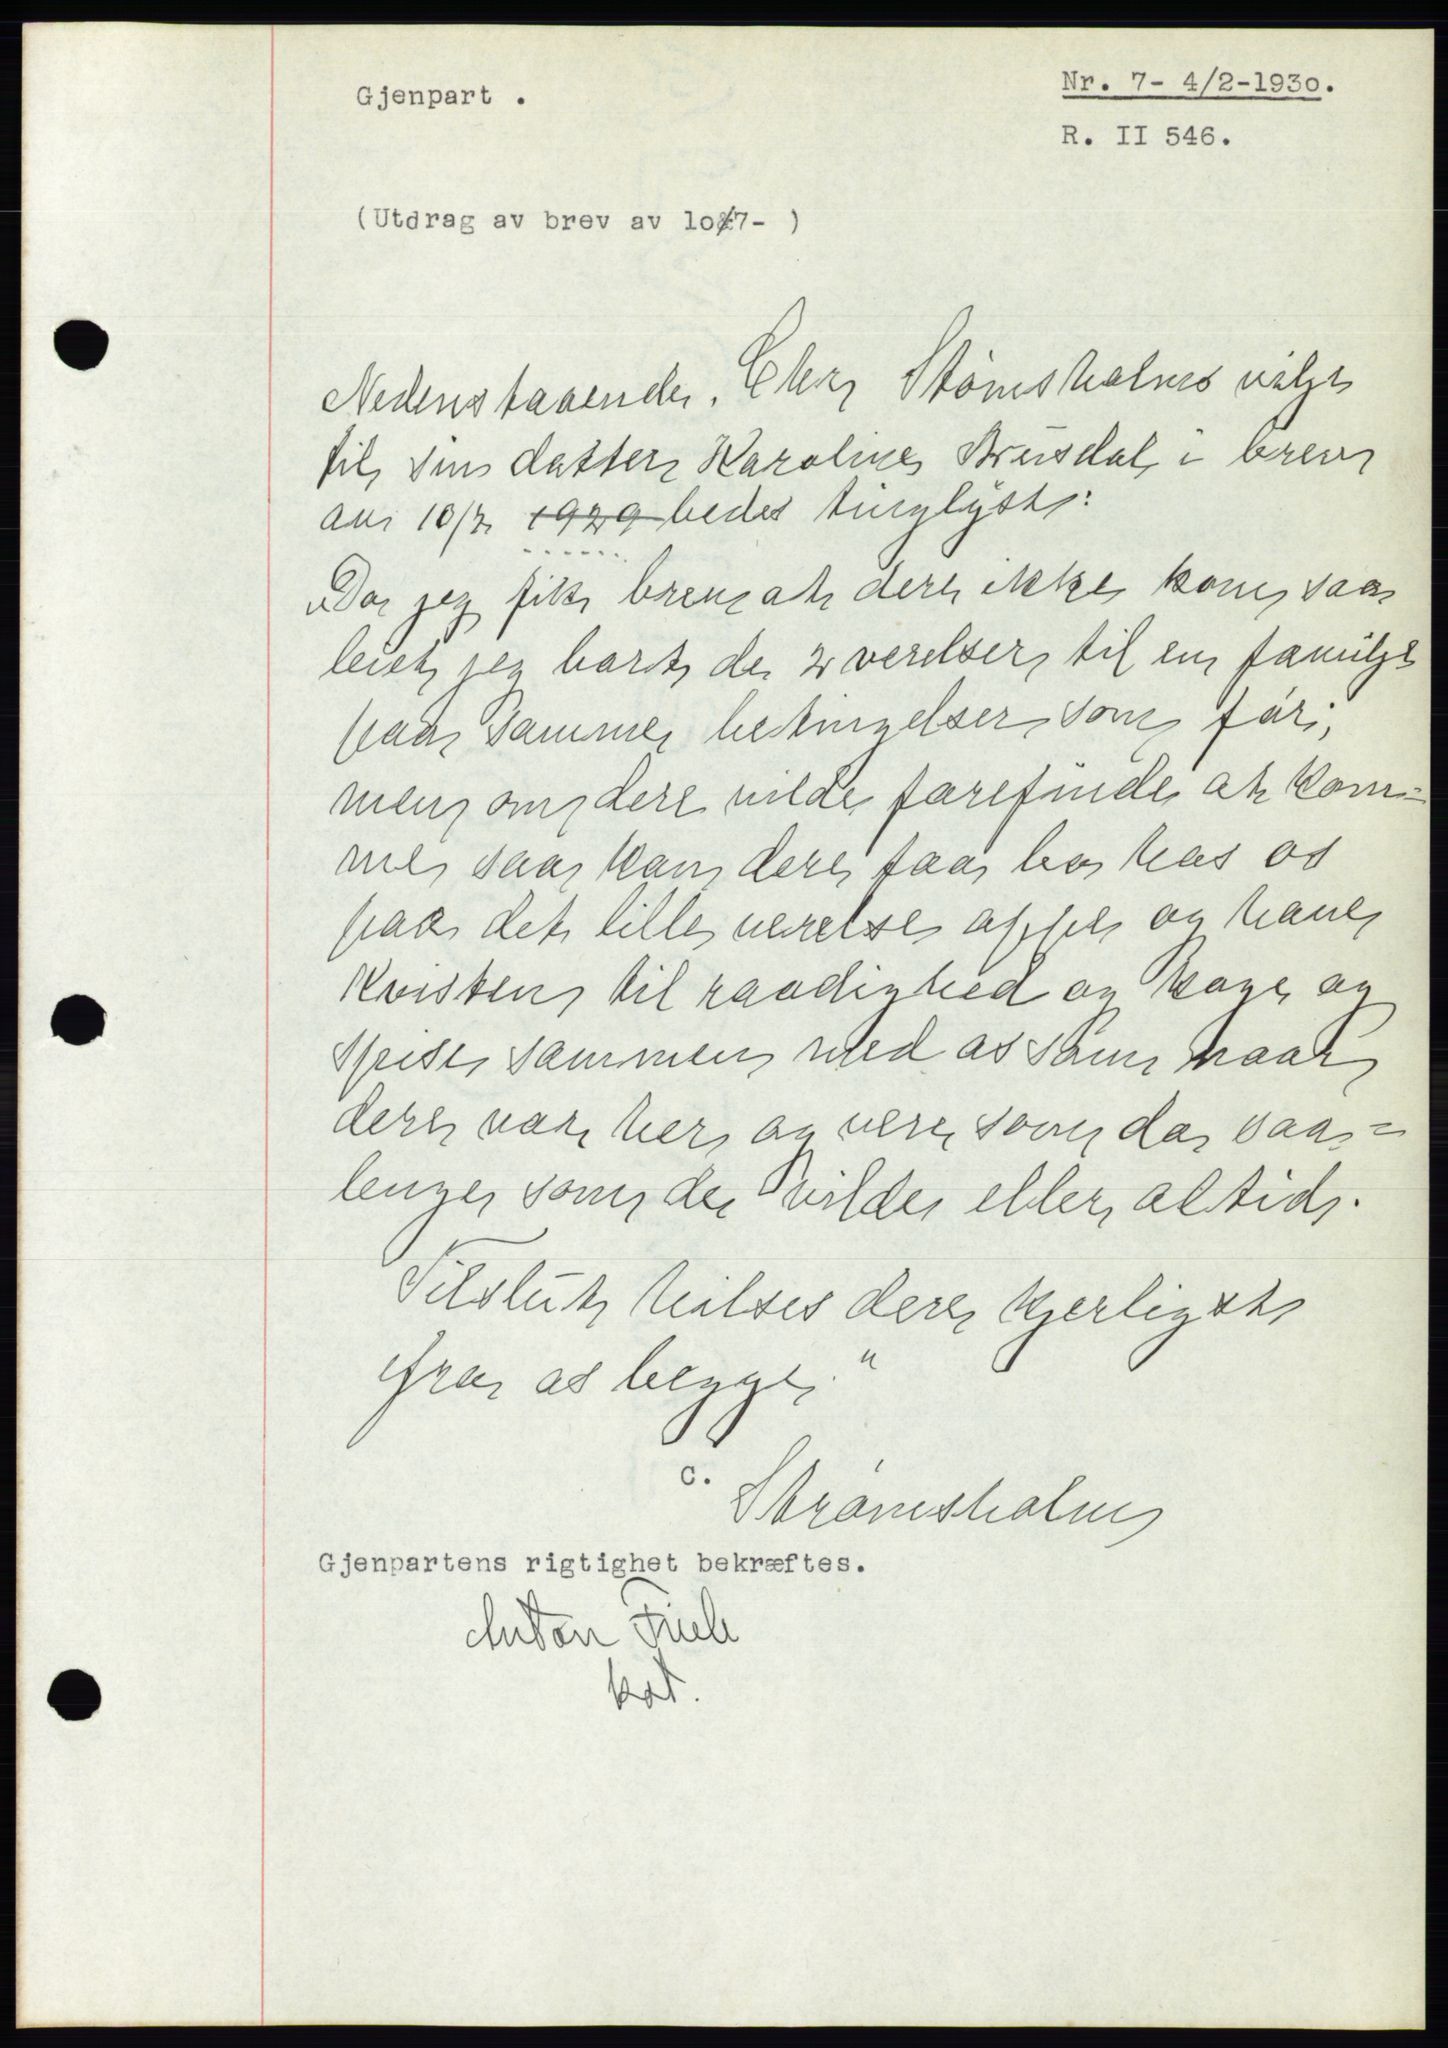 Gjenpart .
Nr. 7- 4/2-1930.
R. II 546.
(Utdrag av brev av 10/7- )
Nedenstaaende, Chr. Stömsholms vilje
til sin datter Karoline Brusdal i brev
av 10/7 1929 bedes tinglyst:
„Da jeg fik brev at dere ikke kom, saa
leiet jeg bort de 2 verelser til en familje
paa samme betingelser som för;
men om dere vilde forefinde at kom=
me saa kan dere faa bo hos os
paa det lille verelse oppe og have
Kvisten til raadighed og koge og
spise sammen med os som naar
dere var her og vere som da saa=
lenge som de vilde eller altid.
Tilslut hilses dere kjerligst
fra os begge."
C. Strömsholm
Gjenpartens rigtighet bekræftes.
Anton
kst.